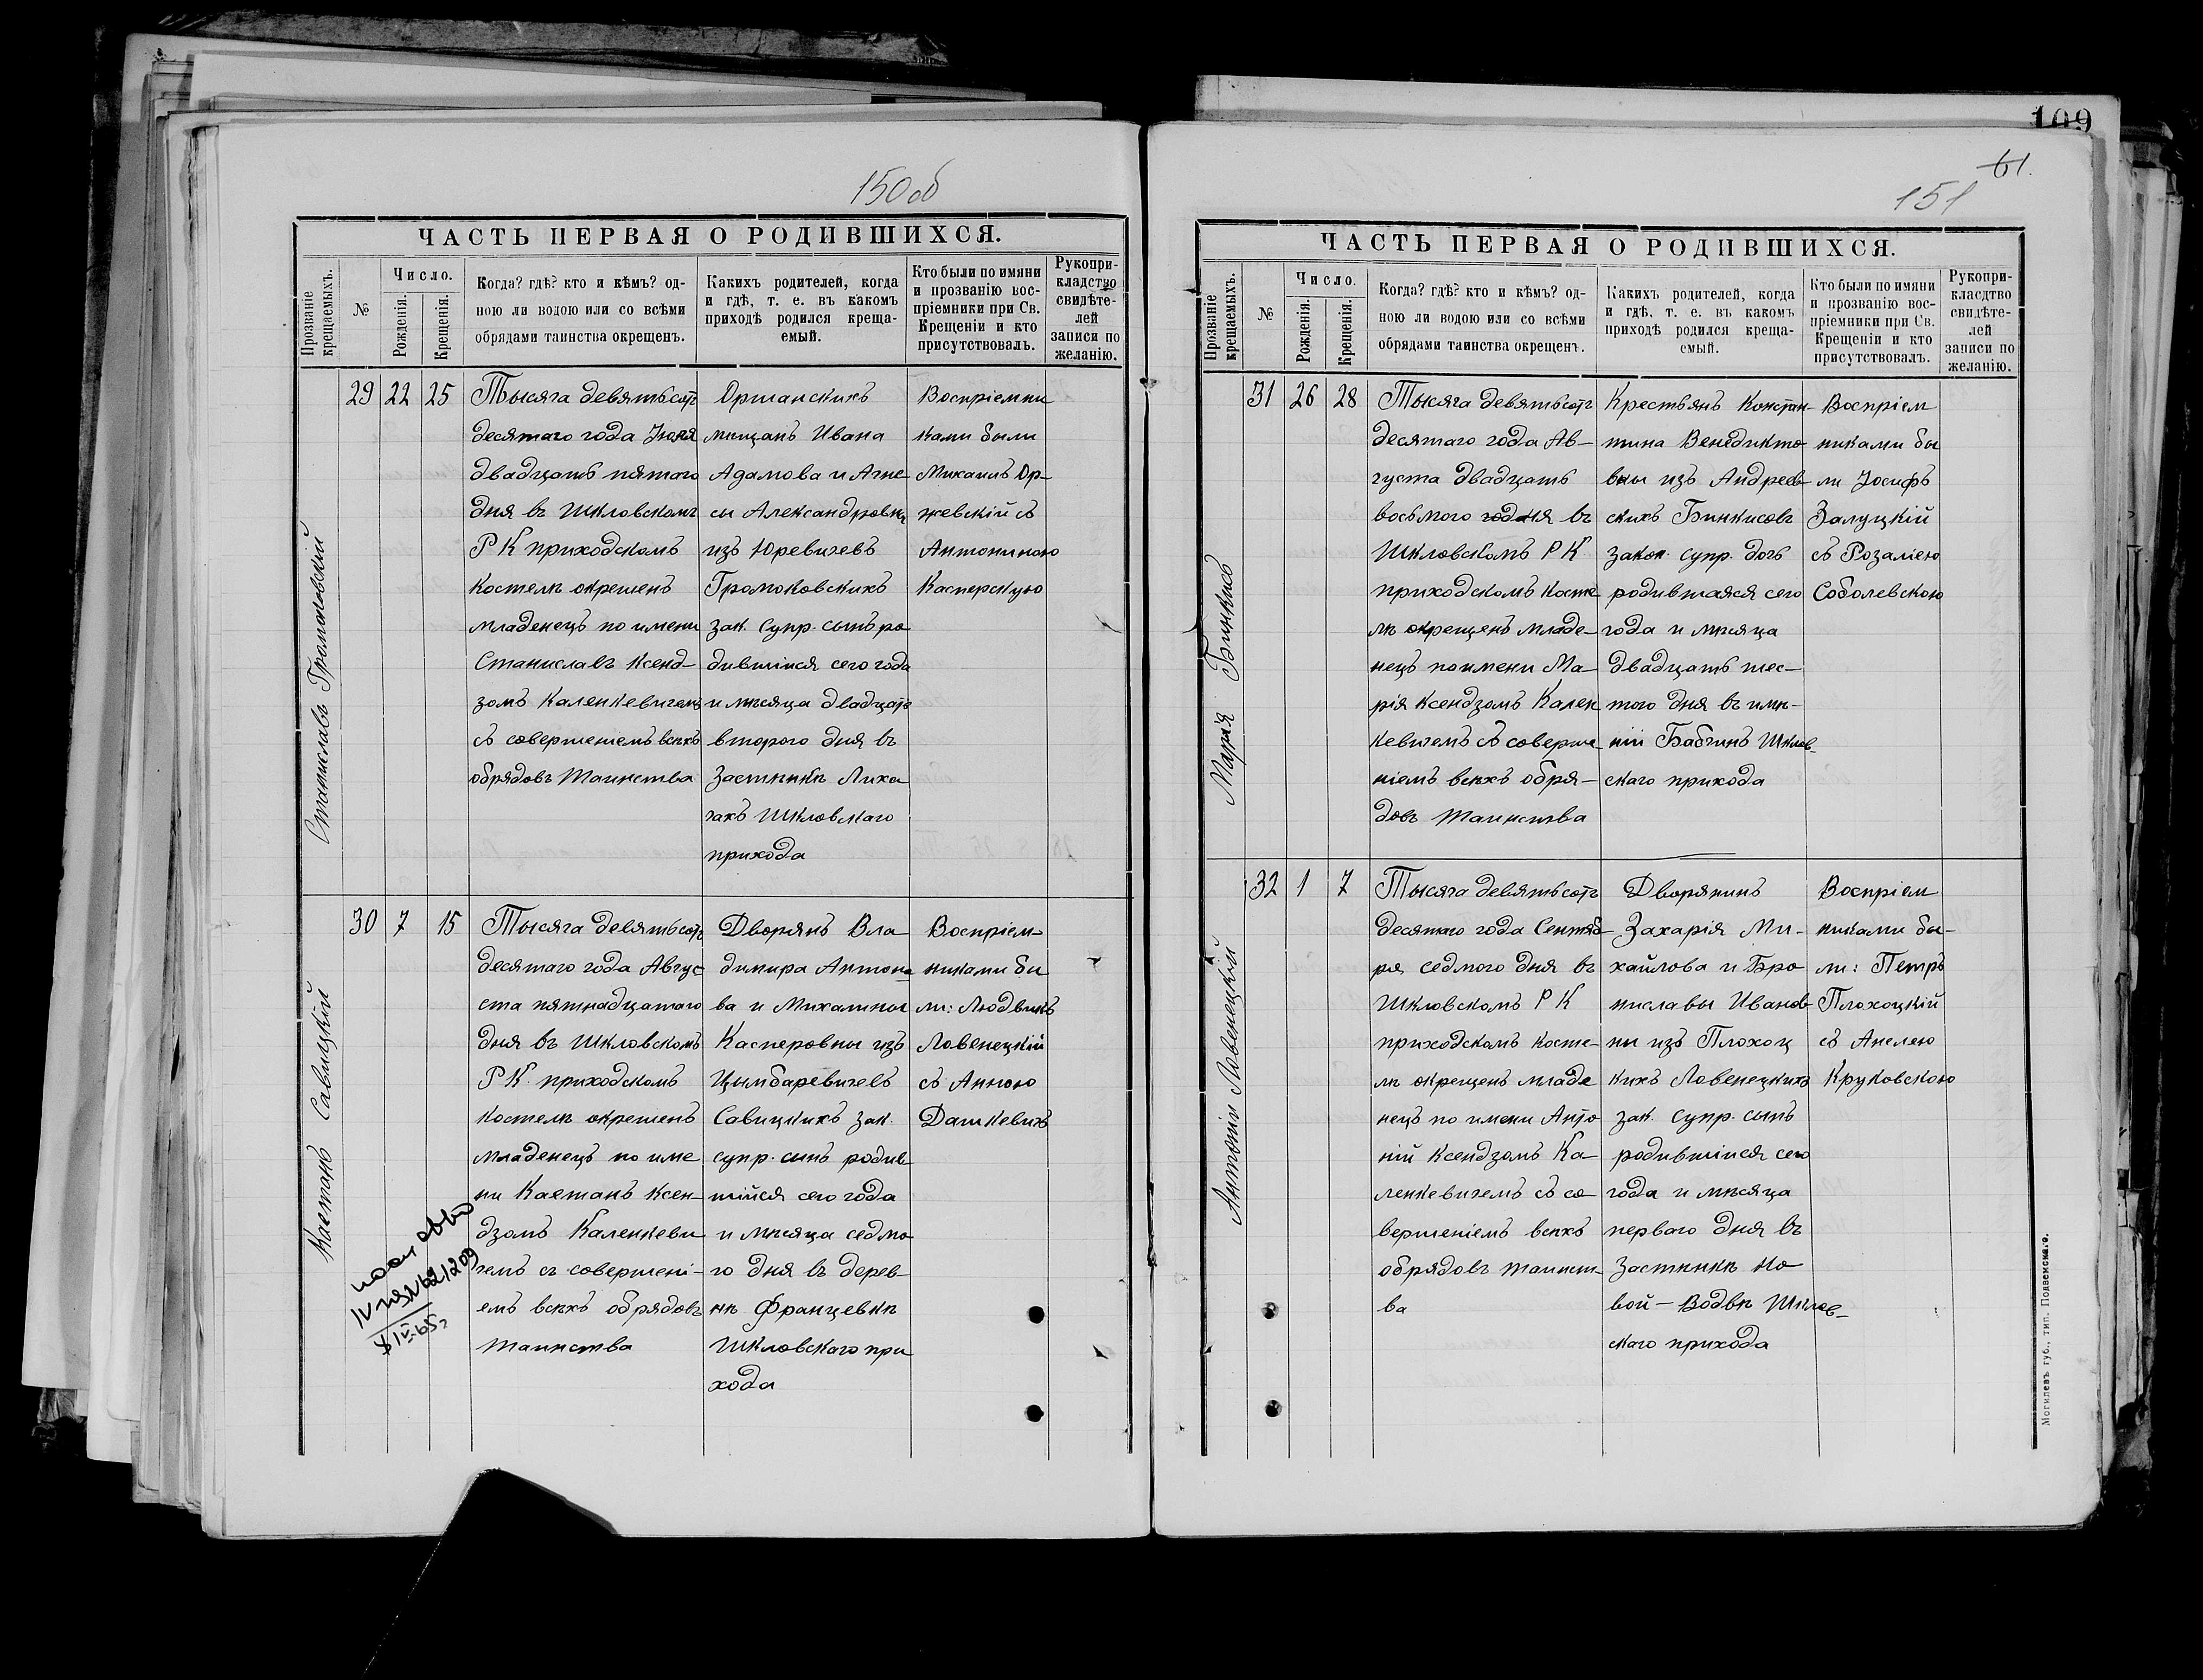 150об
ЧАСТЬ ПЕРВАЯ О РОДИВШИХСЯ.
Прозваніе крещаемыхъ.
№
Число.
Рожденія.
Крещенія.
Когда? гдѣ? кто и кѣмъ? од-
ною ли водою или со всѣми
обрядами таинства окрещенъ.
Какихъ родителей, когда
и гдѣ, т. е. въ какомъ
приходѣ родился креща-
емый.
Кто были по имяни
и прозванію вос-
пріемники при Св.
Крещеніи и кто
присутствовалъ.
Рукопри-
кладство
свидѣте-
лей
записи по
желанію.
Станиславъ Громаковскій
29 22 25
Тысяча девятьсотъ
десятаго года Іюля
двадцать пятаго
дня въ Шкловскомъ
Р К приходскомъ
костелѣ окрещенъ
младенецъ по имени
Станиславъ Ксенд-
зомъ Каленкевичемъ
съ совершеніемъ всѣхъ
обрядовъ Таинства
Оршанскихъ
мѣщанъ Ивана
Адамова и Агне-
сы Александровны
изъ Юревичевъ
Громоковскихъ
зак. супр. сынъ ро
дившійся сего года
и мѣсяца двадцать
второго дня въ
Застѣнкѣ Лиха
чахъ Шкловскаго
прихода
Воспріемни
ками были
Михаилъ Ор-
жевскій съ
Антониною
Касперскую
Каетанъ Савицкій
30 7 15
Тысяча девятьсотъ
десятаго года Авгус
ста пятнадцатаго
дня въ Шкловскомъ
Р К. приходскомъ
костелѣ окрещенъ
младенецъ по име
ни Каетанъ Ксен-
дзомъ Каленкеви
чемъ съ совершені-
емъ всѣхъ обрядовъ
таинства
Дворянъ Вла
димира Антоно
ва и Михалины
Касперовны изъ
Цымбаревичевъ
Савицкихъ зак.
супр. сынъ родив
шійся сего года
и мѣсяца седмо
го дня въ дерев-
нѣ Францевкѣ
Шкловскаго при
хода
Воспріем-
никами бы
ли: Людвикъ
Ловенецкій
съ Анною
Дашкевичъ
109
61.
151
ЧАСТЬ ПЕРВАЯ О РОДИВШИХСЯ.
Прозваніе крещаемыхъ.
№
Число.
Рожденія.
Крещенія.
Когда? гдѣ? кто и кѣмъ? од-
ною ли водою или со всѣми
обрядами таинства окрещенъ.
Какихъ родителей, когда
и гдѣ, т. е. въ какомъ
приходѣ родился креща-
емый.
Кто были по имяни
и прозванію вос-
пріемники при Св.
Крещеніи и кто
присутствовалъ.
Рукопри-
класдтво
свидѣте-
лей
записи по
желанію.
Марія Бинкисъ
31 26 28
Тысяча девятьсотъ
десятаго года Ав-
густа двадцать
восьмого дня въ
Шкловскомъ Р К
приходскомъ косте
лѣ окрещенъ младе-
нецъ по имени Ма-
рія Ксендзомъ Кален
кевичемъ съ соверше
ніемъ всѣхъ обря-
довъ Таинства
Крестьянъ Констан-
тина Венедикто
вны изъ Андреев-
скихъ Бинкисовъ
закон. супр. дочь
родившаяся сего
года и мѣсяца
двадцать шес-
того дня въ имѣ-
ніи Бабчинъ Шклов-
скаго прихода
Воспріем
никами бы
ли Іосифъ
Залуцкій
съ Розаліею
Соболевскою
Антоній Ловенецкій
32 1 7
Тысяча девятьсотъ
десятаго года Сентяб-
ря седмого дня въ
Шкловскомъ Р К
приходскомъ косте-
лѣ окрещенъ младе
нецъ по имени Анто
ній Ксендзомъ Ка-
ленкевичемъ съ со-
вершеніемъ всѣхъ
обрядовъ таинст-
ва
Дворянинъ
Захарія Ми-
хайлова и Бро
ниславы Иванов-
ны изъ Плохоц
кихъ Ловенецкихъ
зак. супр. сынъ
родившійся сего
года и мѣсяца
перваго дня въ
Застѣнкѣ Но
вой-Водвѣ Шклов-
скаго прихода
Воспріем
никами бы-
ли: Петръ
Плохоцкій
съ Анелею
Круковскою
Могилевъ губ., тип. Подземскаго.